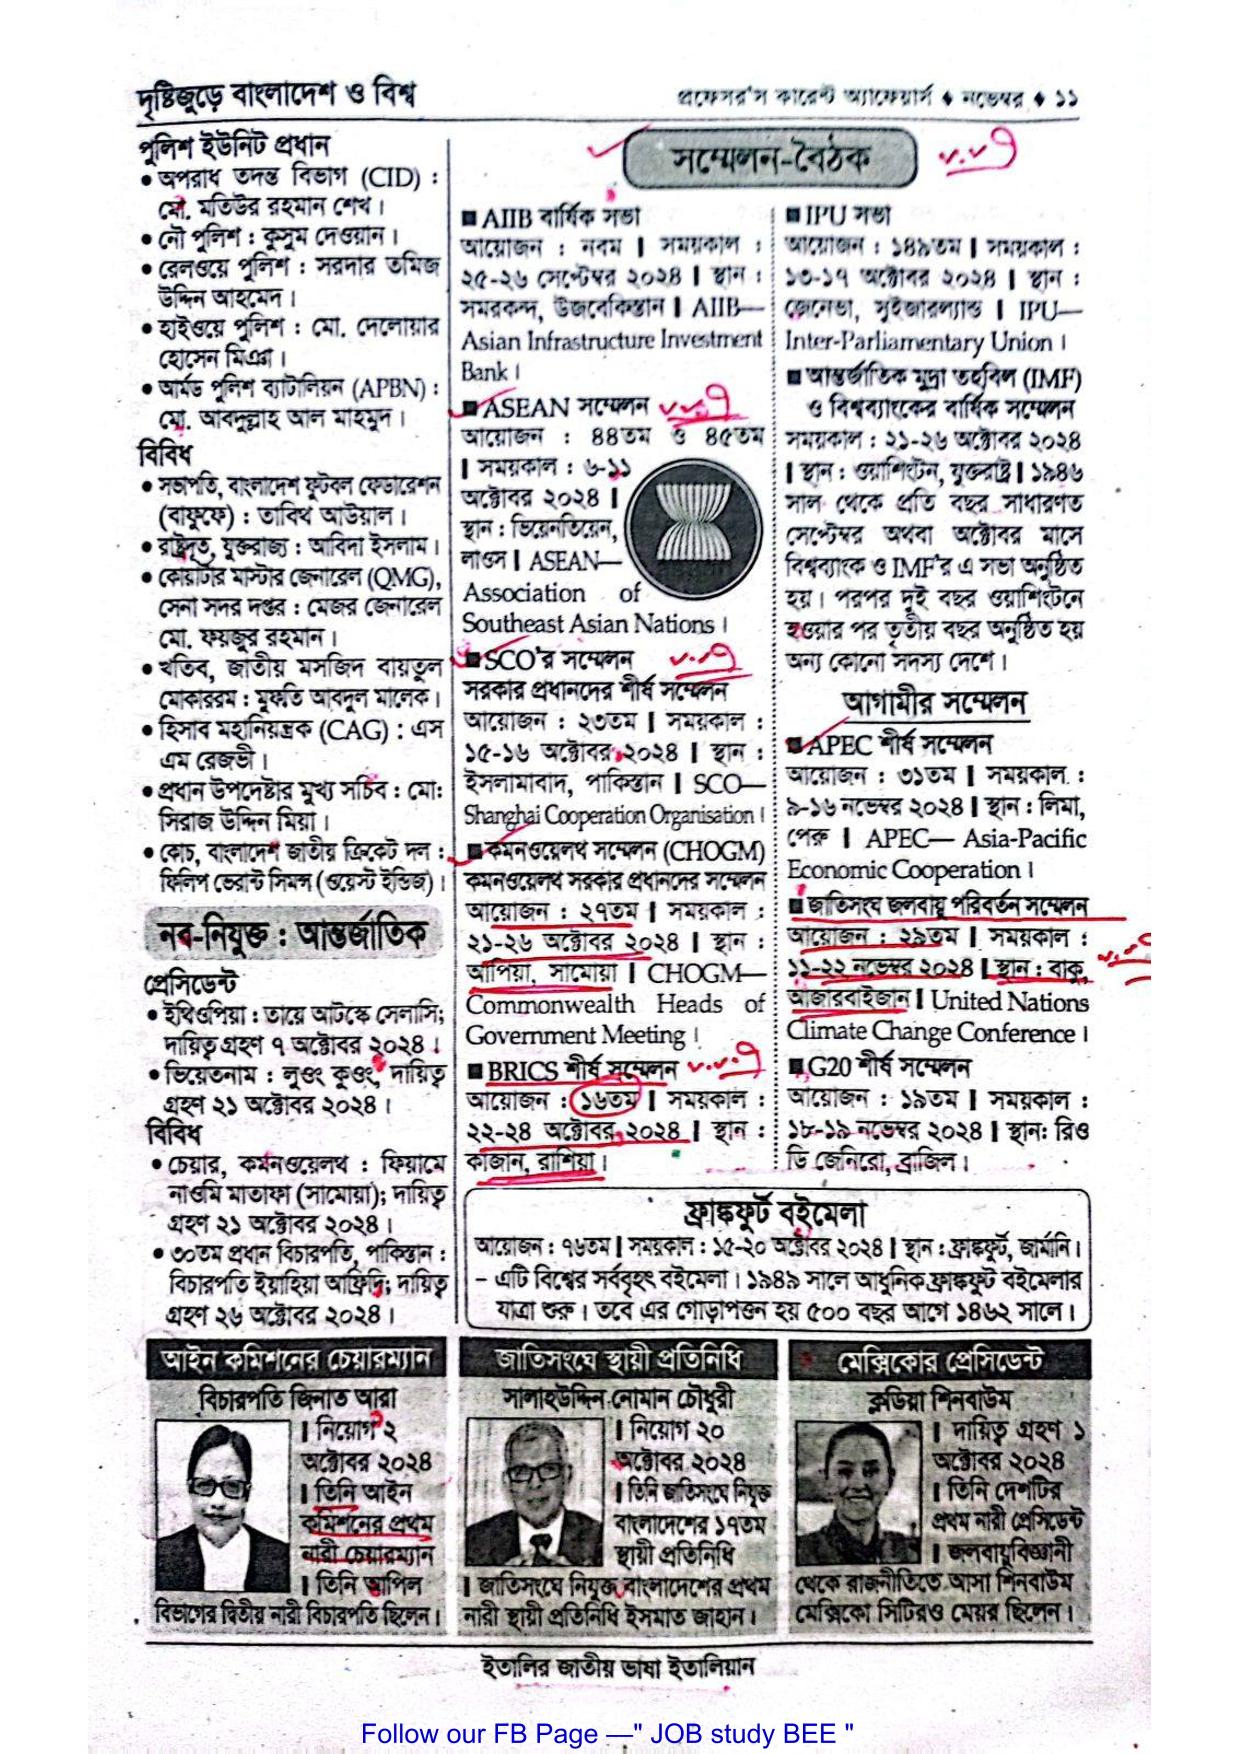 দৃষ্টিজুড়ে বাংলাদেশ ও বিশ্ব
প্রফেসর'স কারেন্ট অ্যাফেয়ার্স ♦ নভেম্বর ♦ ১১
পুলিশ ইউনিট প্রধান
• অপরাধ তদন্ত বিভাগ (CID) :
মো. মতিউর রহমান শেখ।
• নৌ পুলিশ : কুসুম দেওয়ান।
• রেলওয়ে পুলিশ : সরদার তমিজ
উদ্দিন আহমেদ।
• হাইওয়ে পুলিশ : মো. দেলোয়ার
হোসেন মিঞা।
• আর্মড পুলিশ ব্যাটালিয়ন (APBN) :
মো. আবদুল্লাহ আল মাহমুদ।
বিবিধ
• সভাপতি, বাংলাদেশ ফুটবল ফেডারেশন
(বাফুফে) : তাবিথ আউয়াল।
• রাষ্ট্রদূত, যুক্তরাজ্য : আবিদা ইসলাম।
• কোয়ার্টার মাস্টার জেনারেল (QMG),
সেনা সদর দপ্তর : মেজর জেনারেল
মো. ফয়জুর রহমান।
• খতিব, জাতীয় মসজিদ বায়তুল
মোকাররম : মুফতি আবদুল মালেক।
• হিসাব মহানিয়ন্ত্রক (CAG) : এস
এম রেজভী।
• প্রধান উপদেষ্টার মুখ্য সচিব : মো:
সিরাজ উদ্দিন মিয়া।
• কোচ, বাংলাদেশ জাতীয় ক্রিকেট দল :
ফিলিপ ভেরান্ট সিমন্স (ওয়েস্ট ইন্ডিজ)।
নব-নিযুক্ত : আন্তর্জাতিক
প্রেসিডেন্ট
• ইথিওপিয়া : তায়ে আটস্কে সেলাসি;
দায়িত্ব গ্রহণ ৭ অক্টোবর ২০২৪।
• ভিয়েতনাম : লুওং কুওং, দায়িত্ব
গ্রহণ ২১ অক্টোবর ২০২৪।
বিবিধ
• চেয়ার, কমনওয়েলথ : ফিয়ামে
নাওমি মাতাফা (সামোয়া); দায়িত্ব
গ্রহণ ২১ অক্টোবর ২০২৪।
• ৩০তম প্রধান বিচারপতি, পাকিস্তান :
বিচারপতি ইয়াহিয়া আফ্রিদি; দায়িত্ব
গ্রহণ ২৬ অক্টোবর ২০২৪।
সম্মেলন-বৈঠক
■ AIIB বার্ষিক সভা
আয়োজন : নবম | সময়কাল :
২৫-২৬ সেপ্টেম্বর ২০২৪ | স্থান :
সমরকন্দ, উজবেকিস্তান | AIIB—
Asian Infrastructure Investment
Bank।
■ ASEAN সম্মেলন
আয়োজন : ৪৪তম ও ৪৫তম
| সময়কাল : ৬-১১
অক্টোবর ২০২৪ |
স্থান : ভিয়েনতিয়েন,
লাওস | ASEAN—
Association of
Southeast Asian Nations।
■ SCO'র সম্মেলন
সরকার প্রধানদের শীর্ষ সম্মেলন
আয়োজন : ২৩তম | সময়কাল :
১৫-১৬ অক্টোবর ২০২৪ | স্থান :
ইসলামাবাদ, পাকিস্তান | SCO—
Shanghai Cooperation Organisation।
■ কমনওয়েলথ সম্মেলন (CHOGM)
কমনওয়েলথ সরকার প্রধানদের সম্মেলন
আয়োজন : ২৭তম | সময়কাল :
২১-২৬ অক্টোবর ২০২৪ | স্থান :
আপিয়া, সামোয়া | CHOGM—
Commonwealth Heads of
Government Meeting।
■ BRICS শীর্ষ সম্মেলন
আয়োজন : ১৬তম | সময়কাল :
২২-২৪ অক্টোবর ২০২৪ | স্থান :
কাজান, রাশিয়া।
■ IPU সভা
আয়োজন : ১৪৯তম | সময়কাল :
১৩-১৭ অক্টোবর ২০২৪ | স্থান :
জেনেভা, সুইজারল্যান্ড | IPU—
Inter-Parliamentary Union।
■ আন্তর্জাতিক মুদ্রা তহবিল (IMF)
ও বিশ্বব্যাংকের বার্ষিক সম্মেলন
সময়কাল : ২১-২৬ অক্টোবর ২০২৪
| স্থান : ওয়াশিংটন, যুক্তরাষ্ট্র | ১৯৪৬
সাল থেকে প্রতি বছর সাধারণত
সেপ্টেম্বর অথবা অক্টোবর মাসে
বিশ্বব্যাংক ও IMF'র এ সভা অনুষ্ঠিত
হয়। পরপর দুই বছর ওয়াশিংটনে
হওয়ার পর তৃতীয় বছর অনুষ্ঠিত হয়
অন্য কোনো সদস্য দেশে।
আগামীর সম্মেলন
■ APEC শীর্ষ সম্মেলন
আয়োজন : ৩১তম | সময়কাল :
৯-১৬ নভেম্বর ২০২৪ | স্থান : লিমা,
পেরু | APEC— Asia-Pacific
Economic Cooperation।
■ জাতিসংঘ জলবায়ু পরিবর্তন সম্মেলন
আয়োজন : ২৯তম | সময়কাল :
১১-২২ নভেম্বর ২০২৪ | স্থান : বাকু,
আজারবাইজান | United Nations
Climate Change Conference।
■ G20 শীর্ষ সম্মেলন
আয়োজন : ১৯তম | সময়কাল :
১৮-১৯ নভেম্বর ২০২৪ | স্থান: রিও
ডি জেনিরো, ব্রাজিল।
ফ্রাঙ্কফুর্ট বইমেলা
আয়োজন : ৭৬তম | সময়কাল : ১৫-২০ অক্টোবর ২০২৪ | স্থান : ফ্রাঙ্কফুর্ট, জার্মানি।
- এটি বিশ্বের সর্ববৃহৎ বইমেলা। ১৯৪৯ সালে আধুনিক ফ্রাঙ্কফুর্ট বইমেলার
যাত্রা শুরু। তবে এর গোড়াপত্তন হয় ৫০০ বছর আগে ১৪৬২ সালে।
আইন কমিশনের চেয়ারম্যান
বিচারপতি জিনাত আরা
| নিয়োগ ২
অক্টোবর ২০২৪
| তিনি আইন
কমিশনের প্রথম
নারী চেয়ারম্যান
| তিনি আপিল
বিভাগের দ্বিতীয় নারী বিচারপতি ছিলেন।
জাতিসংঘে স্থায়ী প্রতিনিধি
সালাহউদ্দিন নোমান চৌধুরী
| নিয়োগ ২০
অক্টোবর ২০২৪
| তিনি জাতিসংঘে নিযুক্ত
বাংলাদেশের ১৭তম
স্থায়ী প্রতিনিধি
| জাতিসংঘে নিযুক্ত বাংলাদেশের প্রথম
নারী স্থায়ী প্রতিনিধি ইসমাত জাহান।
মেক্সিকোর প্রেসিডেন্ট
ক্লডিয়া শিনবাউম
| দায়িত্ব গ্রহণ ১
অক্টোবর ২০২৪
| তিনি দেশটির
প্রথম নারী প্রেসিডেন্ট
| জলবায়ুবিজ্ঞানী
থেকে রাজনীতিতে আসা শিনবাউম
মেক্সিকো সিটিরও মেয়র ছিলেন।
ইতালির জাতীয় ভাষা ইতালিয়ান
Follow our FB Page —" JOB study BEE "